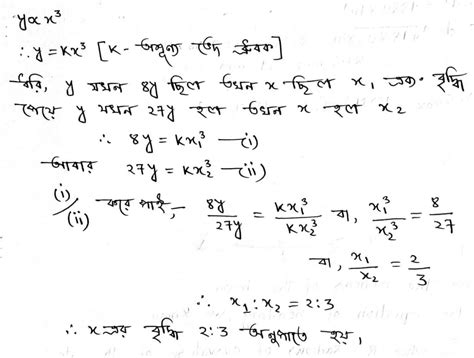 y∝x³
∴ y = Kx³ [K - অশূন্য ভেদ ধ্রুবক]
ধরি, y যখন 8y ছিল তখন x ছিল x₁ এবং বৃদ্ধি
পেয়ে y যখন 27y হল তখন x হল x₂
∴ 8y = Kx₁³ —(i)
আবার 27y = Kx₂³ —(ii)
(i)/(ii) করে পাই,- 8y/27y = Kx₁³/Kx₂³ বা, x₁³/x₂³ = 8/27
বা, x₁/x₂ = 2/3
∴ x₁ : x₂ = 2:3
∴ x এর বৃদ্ধি 2:3 অনুপাতে হয়,